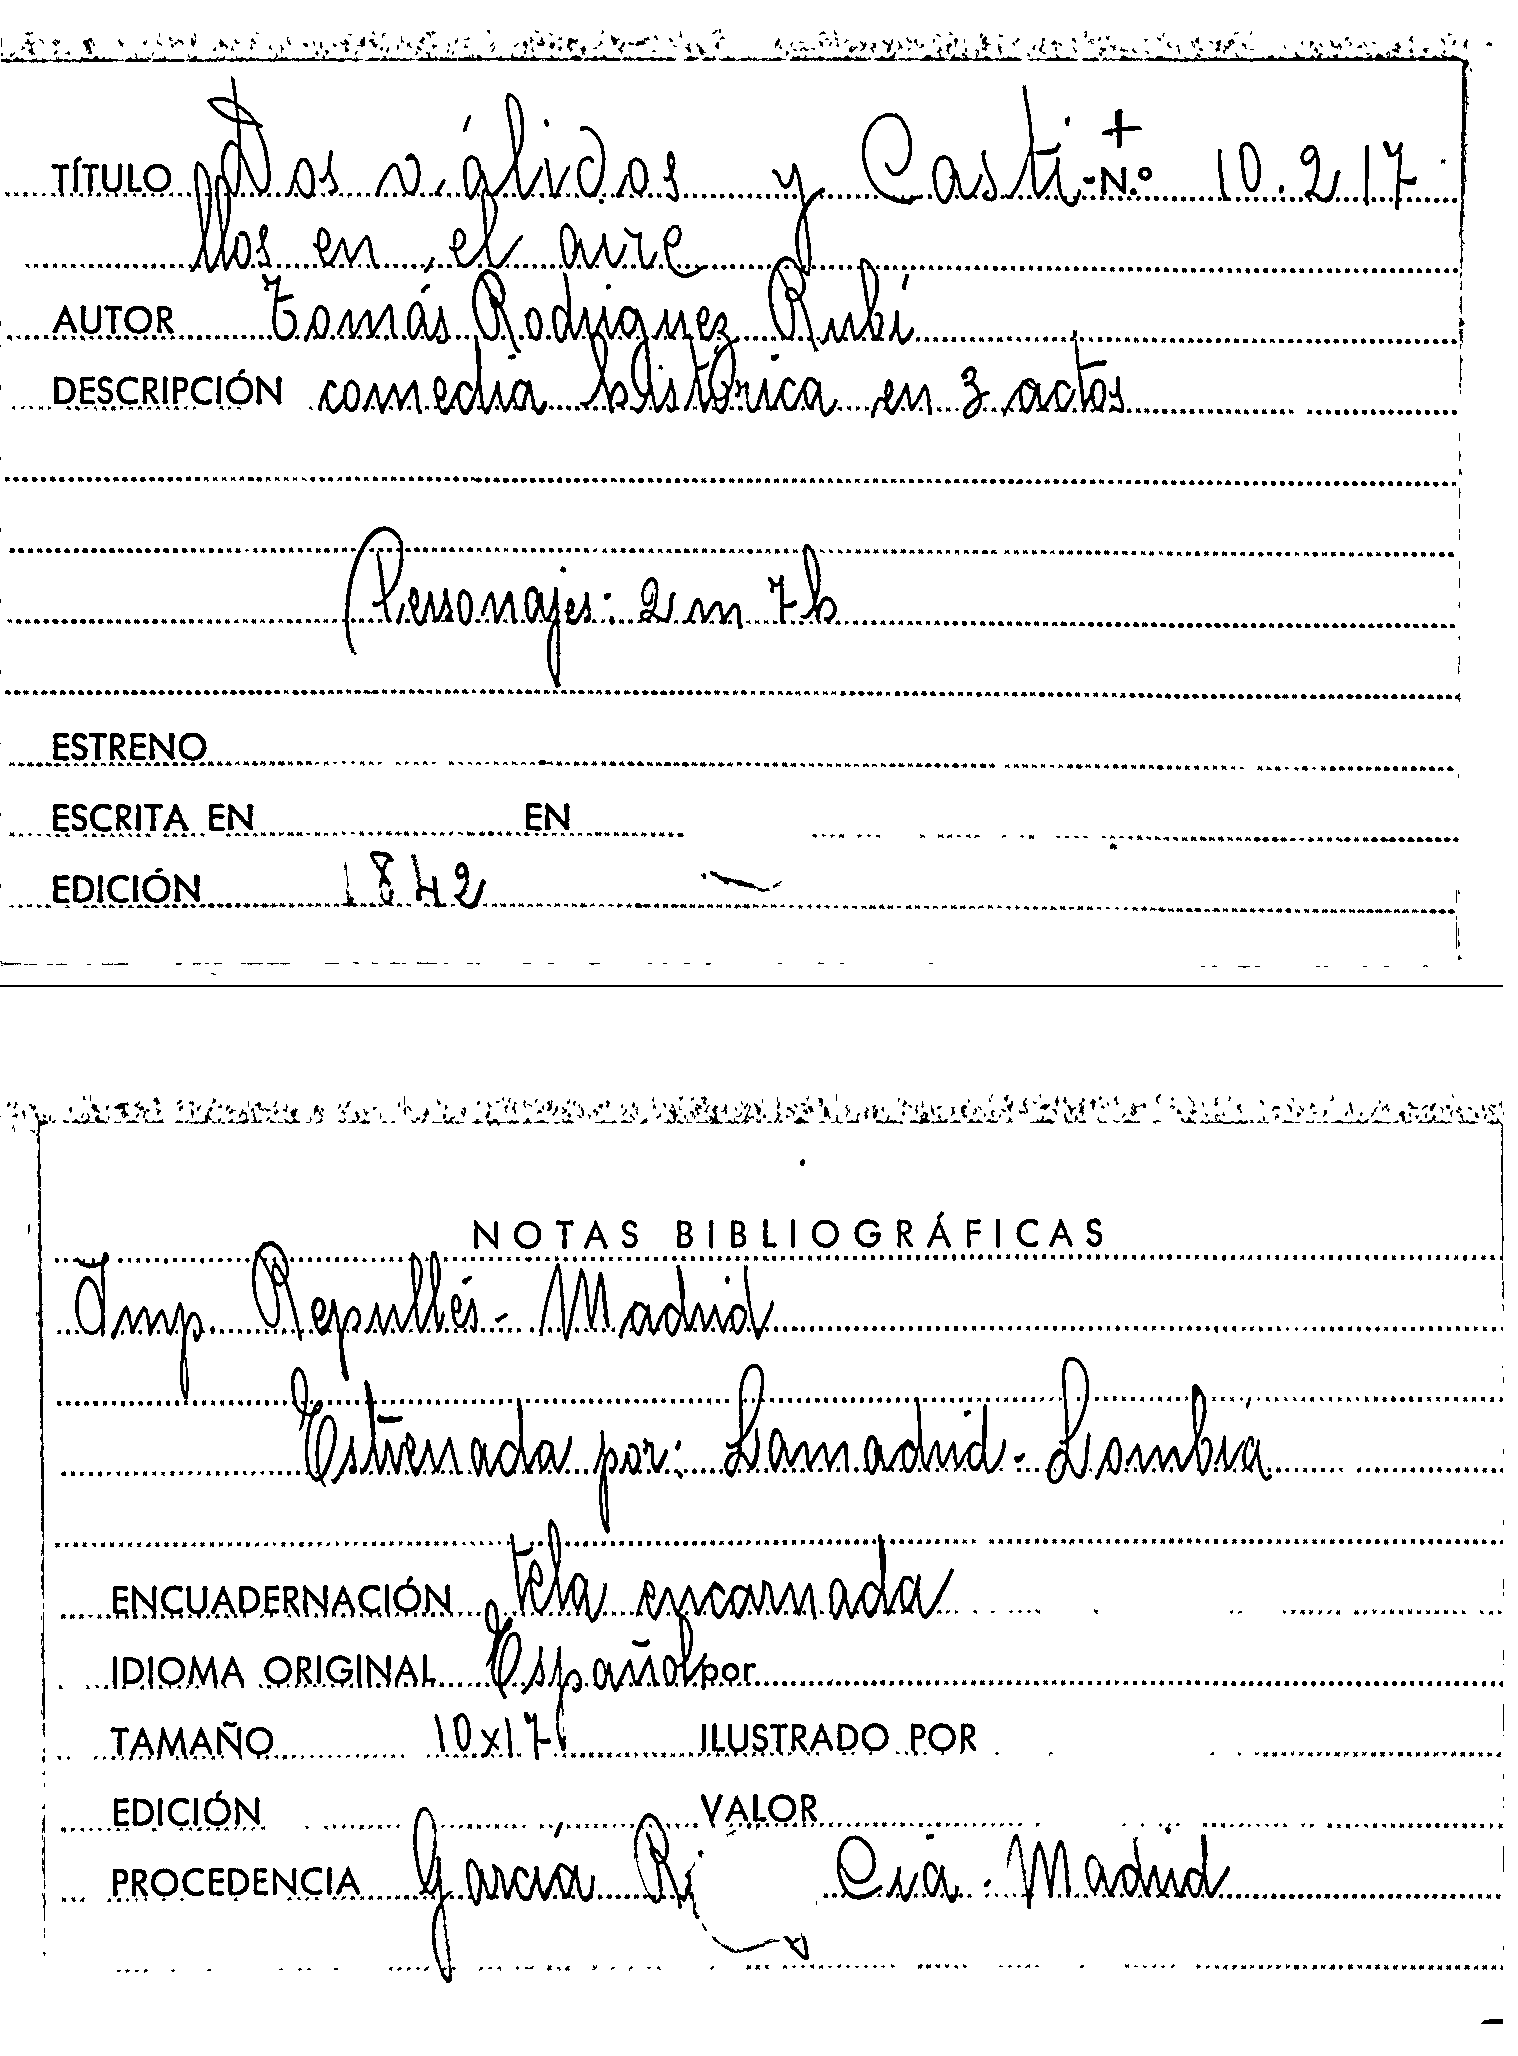 +
TÍTULO Dos válidos y Casti- N.º 10.217
llos en el aire
AUTOR Tomás Rodriguez Rubí
DESCRIPCIÓN comedia histórica en 3 actos
Personajes: 2 m 7 h
ESTRENO
ESCRITA EN EN
EDICIÓN 1842
NOTAS BIBLIOGRÁFICAS
Imp. Repullés - Madrid
Estrenada por: Lamadrid - Lombía
ENCUADERNACIÓN tela encarnada
IDIOMA ORIGINAL Español por
TAMAÑO 10x17 ILUSTRADO POR
EDICIÓN VALOR
PROCEDENCIA García Cía - Madrid